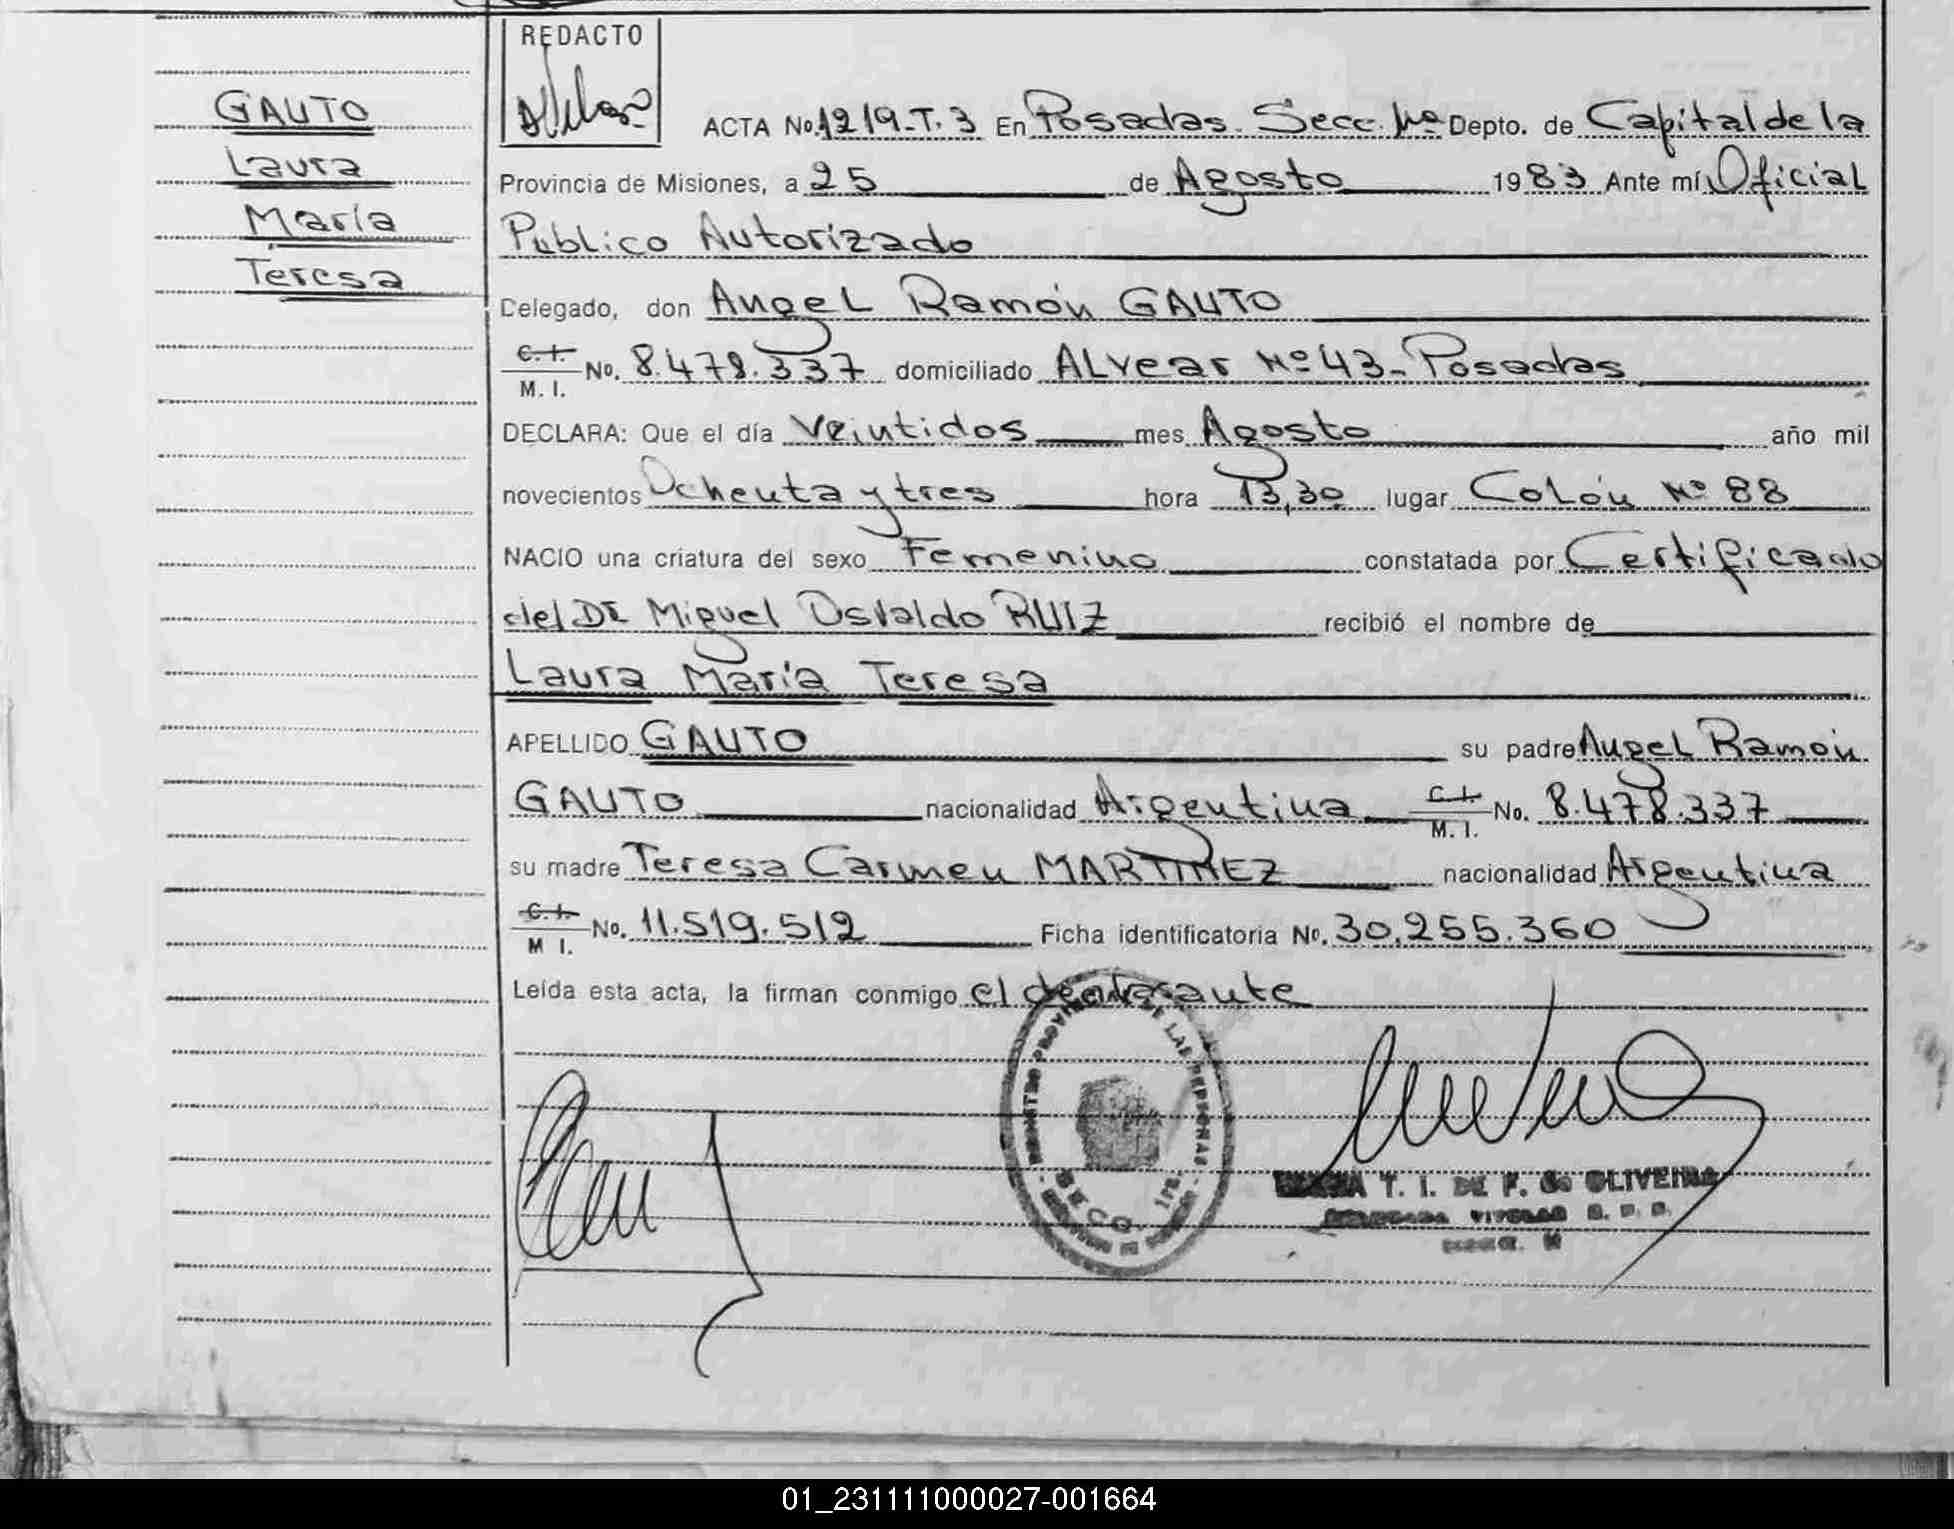 REDACTO
GAUTO
Laura
María
Teresa
ACTA No. 1219-T.3 En Posadas. Secc. Depto. de Capital de la
Provincia de Misiones, a 25 de Agosto 1983 Ante mí, Oficial
Público Autorizado
Delegado, don Angel Ramón GAUTO
C. I. M. I. No. 8.478.337 domiciliado Alvear Nº 43 - Posadas
DECLARA: Que el día Veintidos mes Agosto año mil
novecientos Ochenta y tres hora 13,30 lugar Colón Nº 88
NACIO una criatura del sexo Femenino constatada por Certificado
del Dr Miguel Osvaldo RUIZ recibió el nombre de
Laura María Teresa
APELLIDO GAUTO su padre Angel Ramón
GAUTO nacionalidad Argentina C. I. M. I. No. 8.478.337
su madre Teresa Carmen MARTINEZ nacionalidad Argentina
C. I. M I. No. 11.519.512 Ficha identificatoria No. 30.255.360
Leída esta acta, la firman conmigo el declarante
REGISTRO PROVINCIAL DE LAS PERSONAS
SECC.
T. I. DE F. de OLIVEIRA
01_231111000027-001664